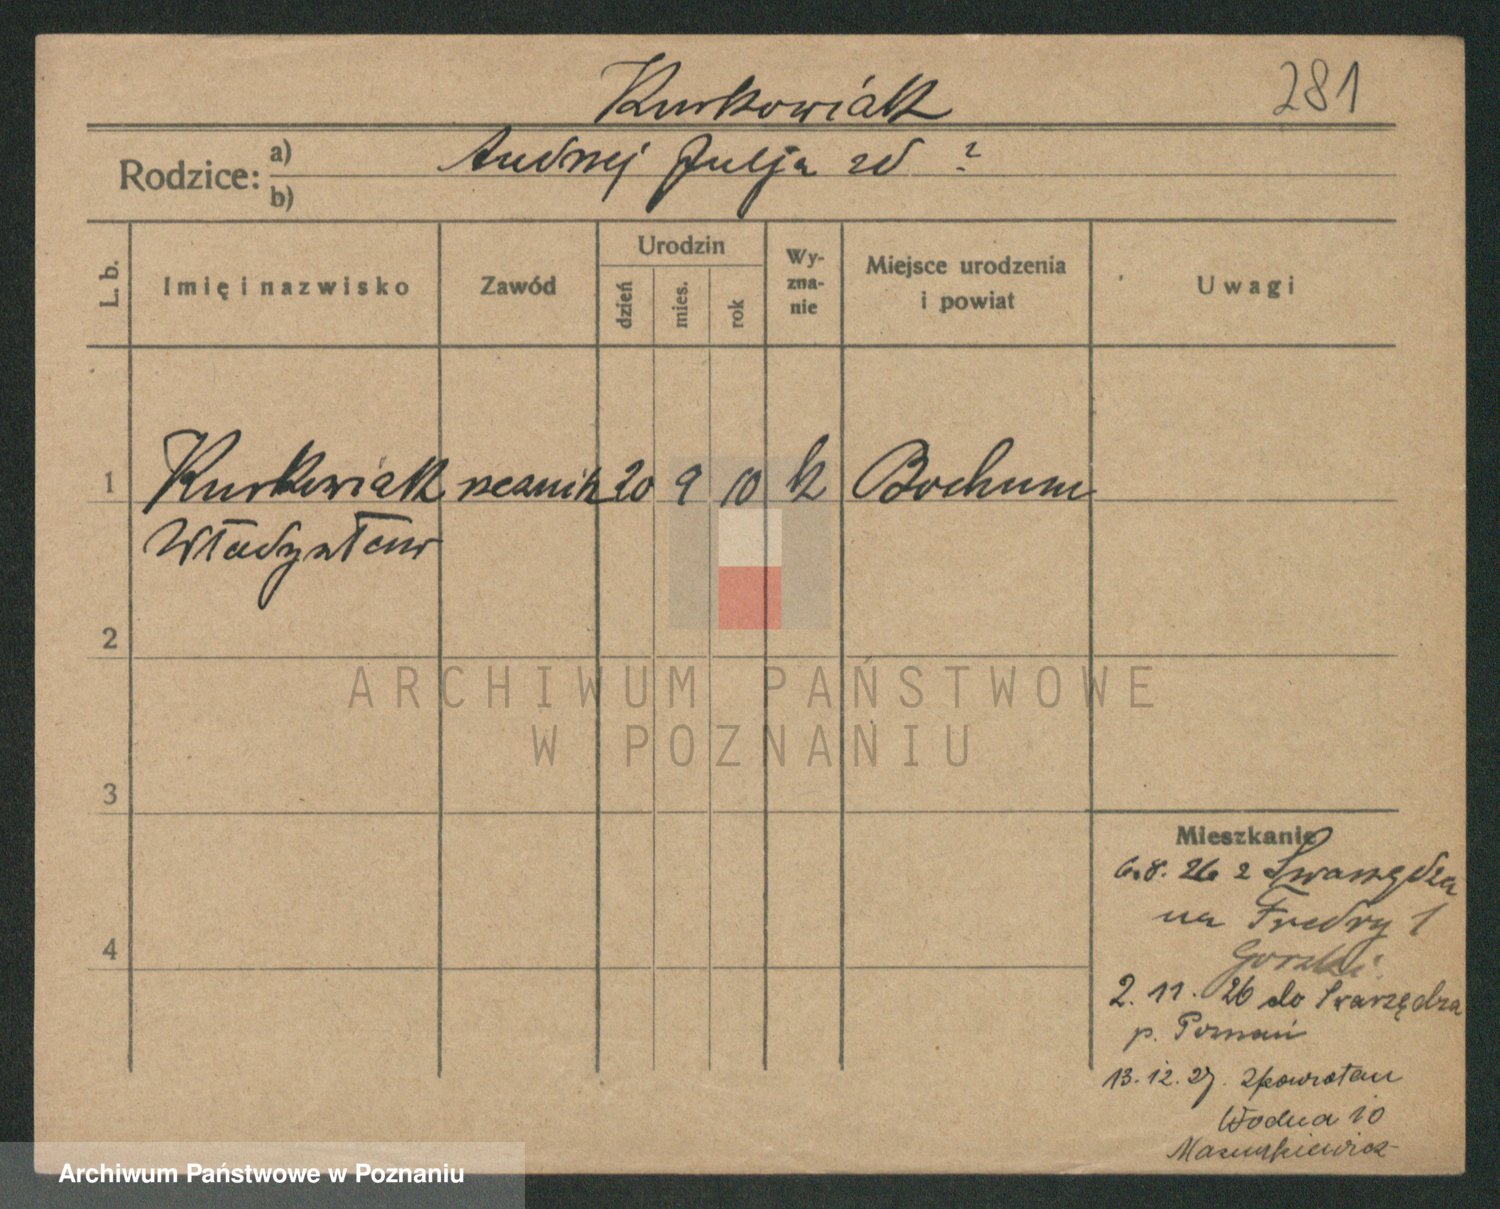 Kurkowiak
281
Rodzice: a) Andrzej Julja zd ?
b)
L. b. Imię i nazwisko Zawód Urodzin dzień mies. rok Wyznanie Miejsce urodzenia i powiat Uwagi
1 Kurkowiak uczeń 20 9 10 k Bochum
Władysław
2
ARCHIWUM PAŃSTWOWE
W POZNANIU
3
Mieszkanie
6.8.26 z Swarzędza
na Fredry 1
4
Gorzki
2.11.26 do Swarzędza
p. Poznań
13.12.27. zpowrotem
Wodna 10
Mazurkiewicz
Archiwum Państwowe w Poznaniu